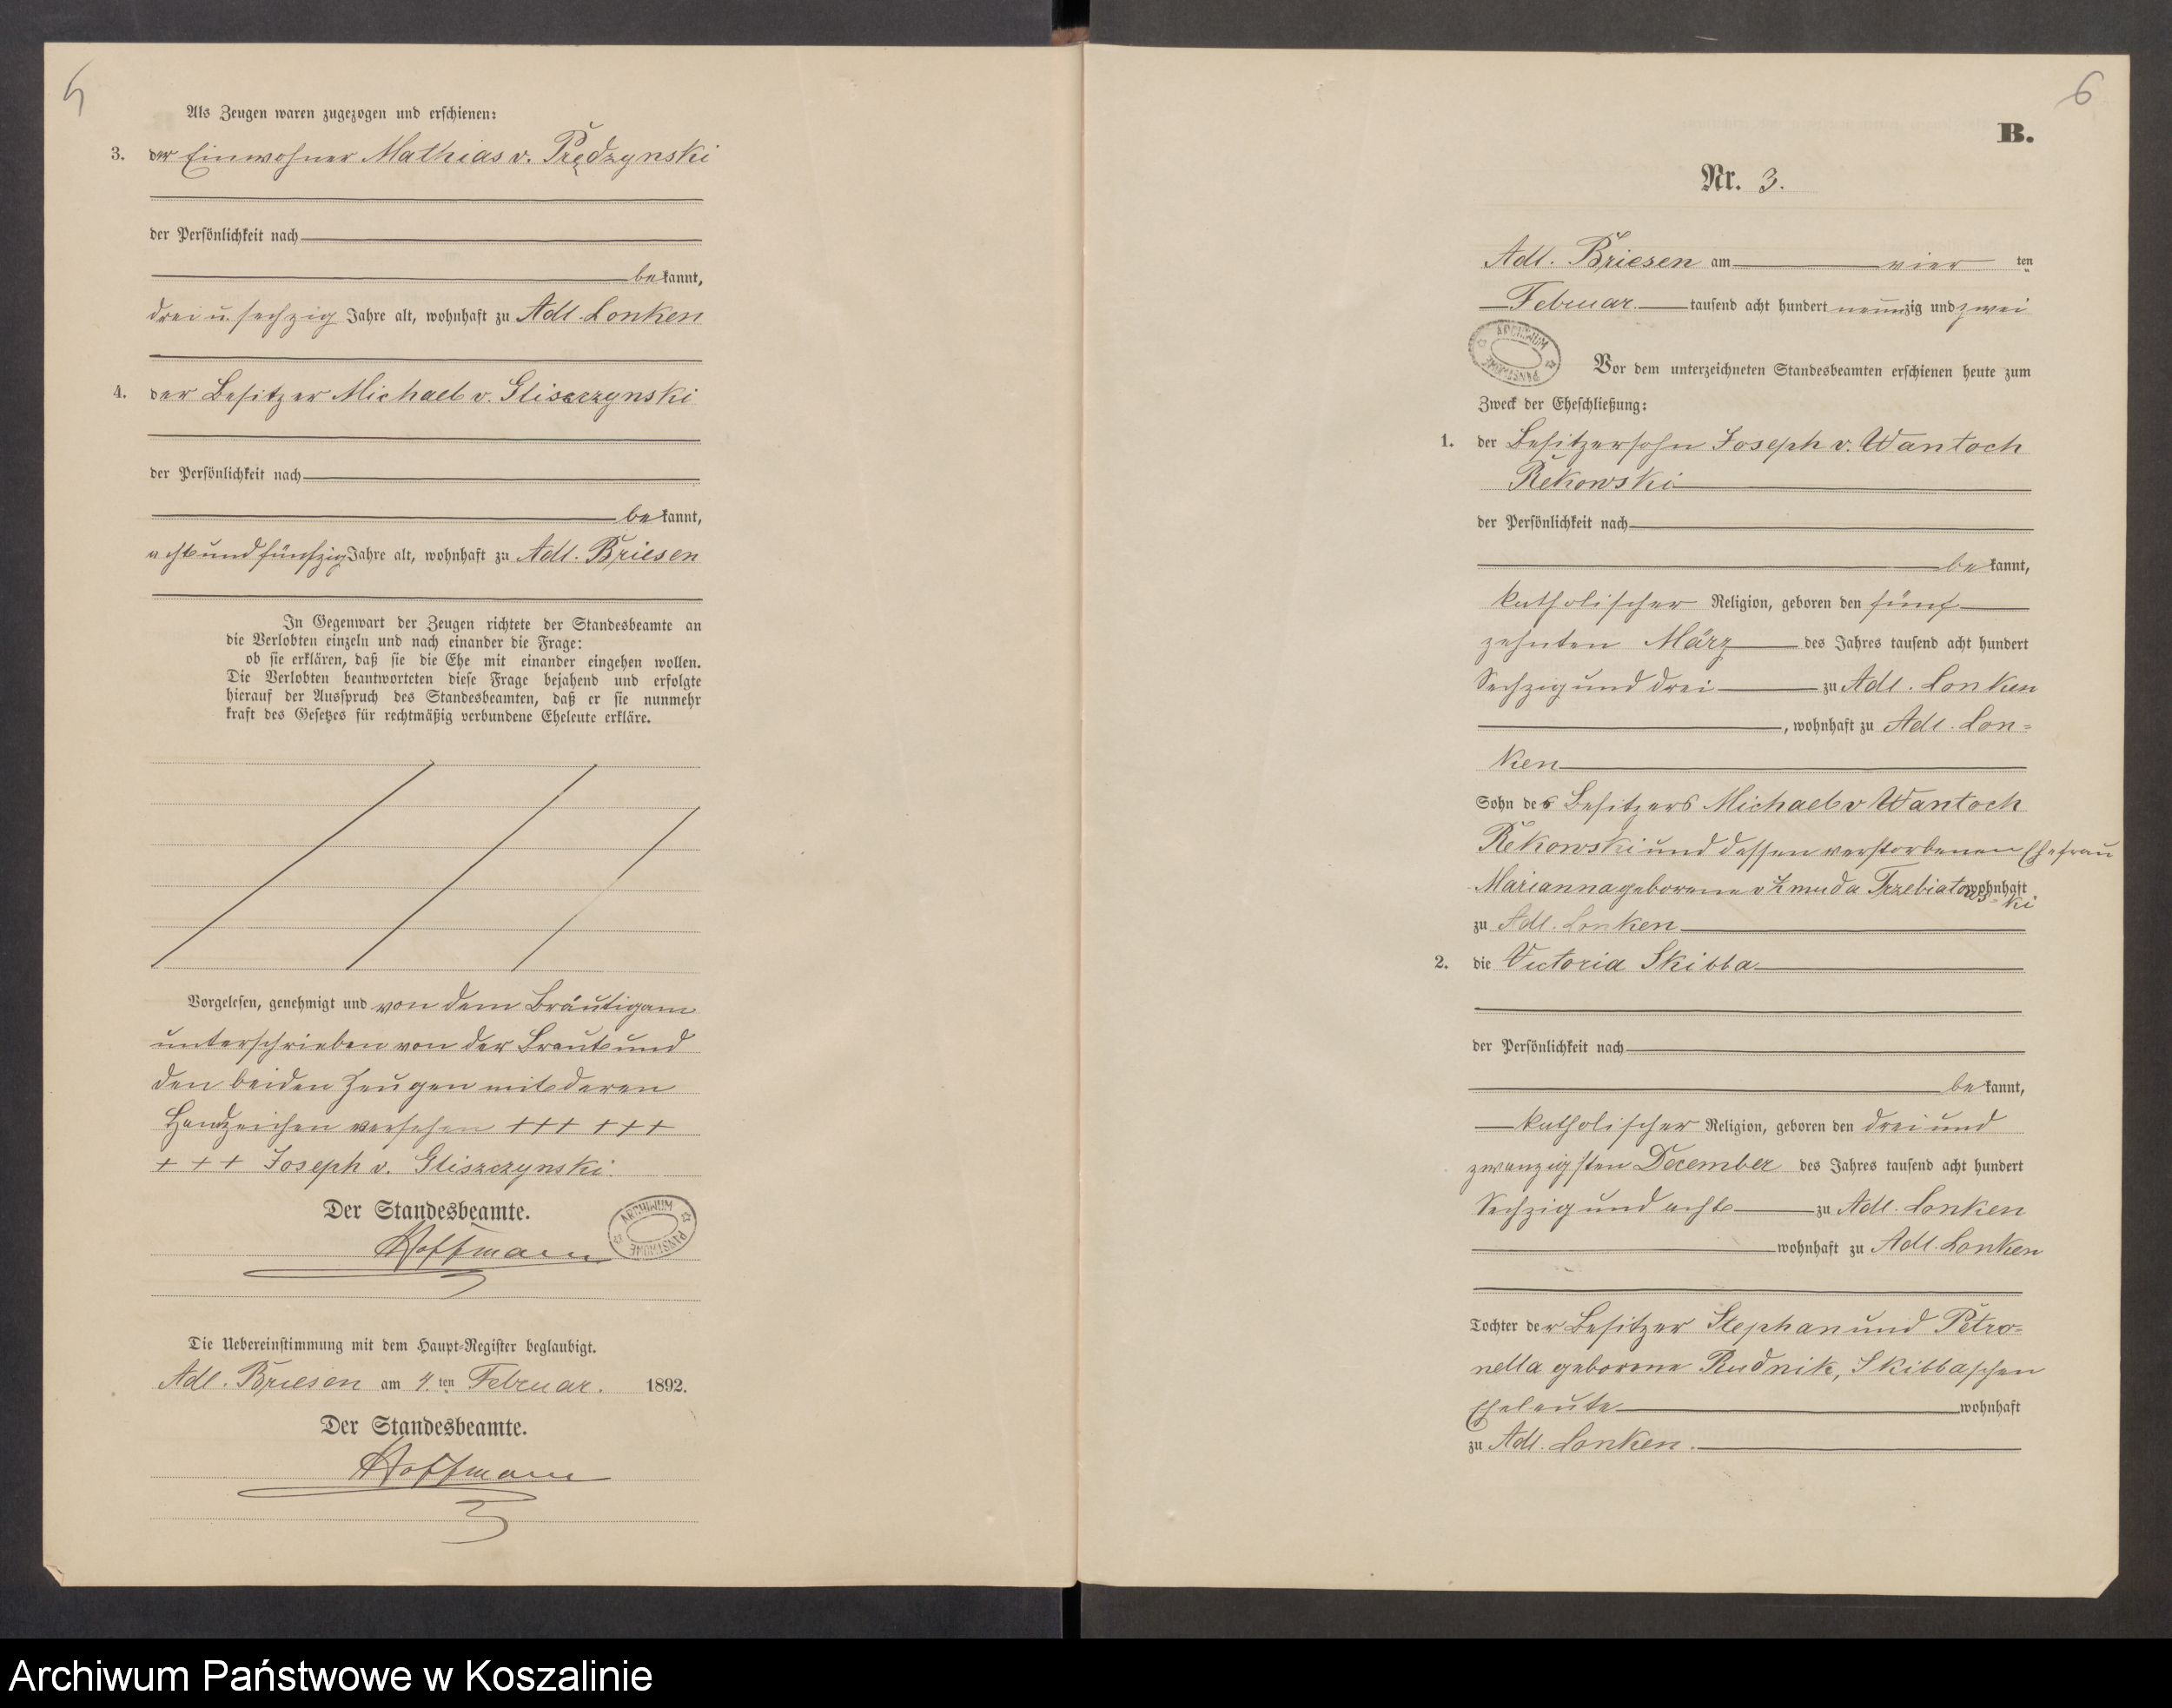 5
Als Zeugen waren zugezogen und erschienen:
3. der Einwohner Mathias v. Prędzynski
der Persönlichkeit nach
bekannt,
drei u. sechzig Jahre alt, wohnhaft zu Adl. Lonken
4. der Besitzer Michael v. Gliszczynski
der Persönlichkeit nach
bekannt,
acht und fünfzig Jahre alt, wohnhaft zu Adl. Briesen
In Gegenwart der Zeugen richtete der Standesbeamte an
die Verlobten einzeln und nach einander die Frage:
ob sie erklären, daß sie die Ehe mit einander eingehen wollen.
Die Verlobten beantworteten diese Frage bejahend und erfolgte
hierauf der Ausspruch des Standesbeamten, daß er sie nunmehr
kraft des Gesetzes für rechtmäßig verbundene Eheleute erkläre.
Vorgelesen, genehmigt und von dem Bräutigam
unterschrieben von der Braut und
den beiden Zeugen mit deren
Handzeichen versehen +++ +++
+++ Joseph v. Gliszczynski.
Der Standesbeamte.
Hoffmann
ARCHIWUM PAŃSTWOWE
Die Uebereinstimmung mit dem Haupt-Register beglaubigt.
Adl. Briesen am 4. ten Februar. 1892.
Der Standesbeamte.
Hoffmann
6
B.
Nr. 3.
Adl. Briesen am vier ten
Februar. tausend acht hundert neunzig und zwei
ARCHIWUM PAŃSTWOWE
Vor dem unterzeichneten Standesbeamten erschienen heute zum
Zweck der Eheschließung:
1. der Besitzersohn Joseph v. Wantoch
Rekowski
der Persönlichkeit nach
bekannt,
katholischer Religion, geboren den fünf
zehnten März des Jahres tausend acht hundert
Sechzig und drei zu Adl. Lonken
, wohnhaft zu Adl. Lon=
ken
Sohn des Besitzers Michael v Wantoch
Rekowski und dessen verstorbenen Ehefrau
Marianna geborene v Zmuda Trzebiatows= wohnhaft
ki
zu Adl. Lonken
2. die Victoria Skibba
der Persönlichkeit nach
bekannt,
katholischer Religion, geboren den drei und
zwanzigsten December des Jahres tausend acht hundert
Sechzig und acht zu Adl. Lonken
wohnhaft zu Adl. Lonken
Tochter der Besitzer Stephan und Petro=
nella geborene Rudnik, Skibbaschen
Eheleute wohnhaft
zu Adl. Lonken.
Archiwum Państwowe w Koszalinie